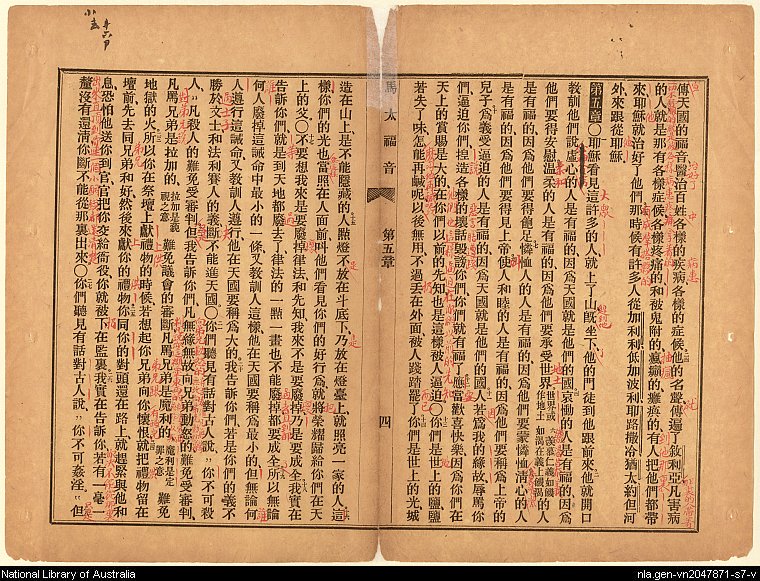 傳天國的福音醫治百姓各樣的疾病各樣的症候他的名聲傳遍了敘利亞凡害病
的人就是那有各樣症候各樣疼痛的和被鬼附的瘋癲的癱瘓的有人把他們都帶
來耶穌就治好了他們那時候有許多人從加利利低加波利耶路撒冷猶太約但河
外來跟從耶穌
第五章○耶穌看見這許多的人就上了山旣坐下他的門徒到他跟前來他就開口
教訓他們說虛心的人是有福的因爲天國就是他們的國哀慟的人是有福的因爲
他們要得安慰温柔的人是有福的因爲他們要承受世界世界或作地土羨慕仁義如饑如渴在義上饑渴的人
是有福的因爲他們要得飽足憐恤人的人是有福的因爲他們要蒙憐恤清心的人
是有福的因爲他們要得見上帝使人和睦的人是有福的因爲他們要稱爲上帝的
兒子爲義受逼迫的人是有福的因爲天國就是他們的國人若爲我的緣故辱罵你
們逼迫你們捏造各樣的壞話毀謗你們你們就有福了應當歡喜快樂因爲你們在
天上的賞賜是大的在你們以前的先知也是這樣被人逼迫○你們是世上的鹽鹽
若失了味怎能再鹹呢以後無用不過丟在外面被人踐踏罷了你們是世上的光城
馬太福音 第五章 四
造在山上是不能隱藏的人點燈不放在斗底下乃放在燈臺上就照亮一家的人這
樣你們的光也當照在人面前叫他們看見你們的好行爲就將榮耀歸給你們在天
上的父○不要想我來是要廢掉律法和先知我來不是要廢掉乃是要成全我實在
告訴你們就是到天地都廢去了律法的一點一畫也不能廢掉都要成全所以無論
何人廢掉這誡命中最小的一條又教訓人這樣他在天國要稱爲最小的但無論何
人遵行這誡命又教訓人遵行他在天國要稱爲大的我告訴你們若是你們的義不
勝於文士和法利賽人的義斷不能進天國○你們聽見有話對古人說你不可殺
人凡殺人的難免受審判但我告訴你們凡無緣無故向兄弟動怒的難免受審判
凡罵兄弟是拉加的拉加是義視之意難免議會的審斷凡罵弟兄是魔利的魔利是定罪之意難免
地獄的火所以你在祭壇上獻禮物的時候若想起你兄弟向你懷恨就把禮物留在
壇前先去同兄弟和好然後來獻你的禮物你同你的對頭還在路上就趕緊與他和
息恐怕他送你到官官把你交給衙役你就被下在監裏我實在告訴你若有一毫一
釐沒有還淸你斷不能從那裏出來○你們聽見有話對古人說你不可姦淫但
National Library of Australia
nla.gen-vn2047871-s7-v